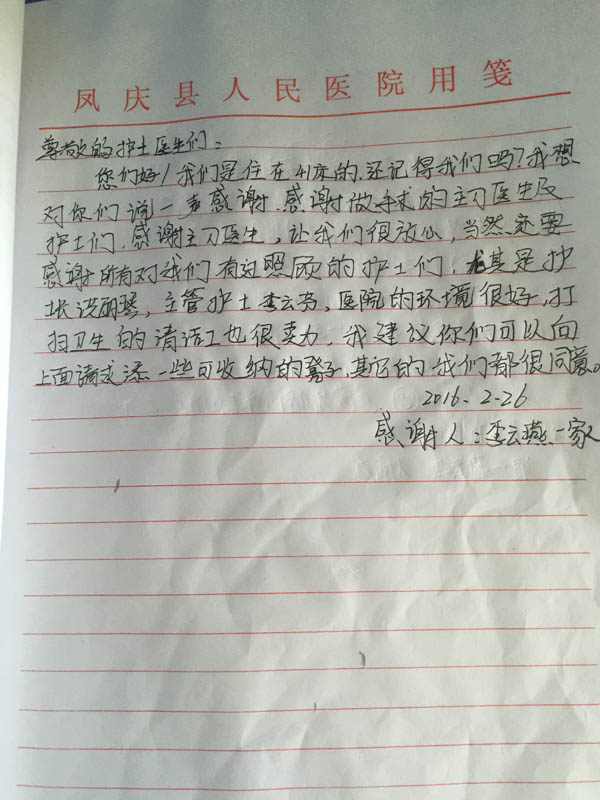 凤庆县人民医院用笺
尊敬的护士医生们：
您们好！我们是住在41床的，还记得我们吗？我想
对你们说一声感谢，感谢做手术的主刀医生及
护士们，感谢主刀医生，让我们很放心，当然还要
感谢所有对我们有过照顾的护士们，尤其是护
长洗丽琴，主管护士李云芬，医院的环境很好，打
扫卫生的清洁工也很卖力，我建议你们可以向
上面请求添一些可收纳的凳子，其它的我们都很同意。
2016.2-26
感谢人：李云燕一家